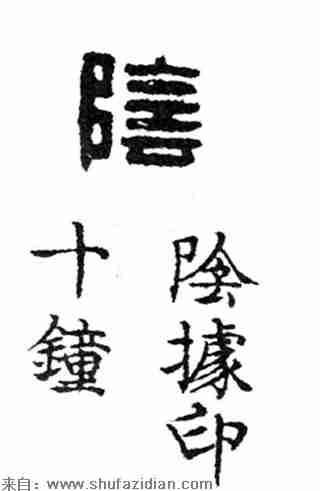 陰
陰據印
十鐘
来自：www.shufazidian.com